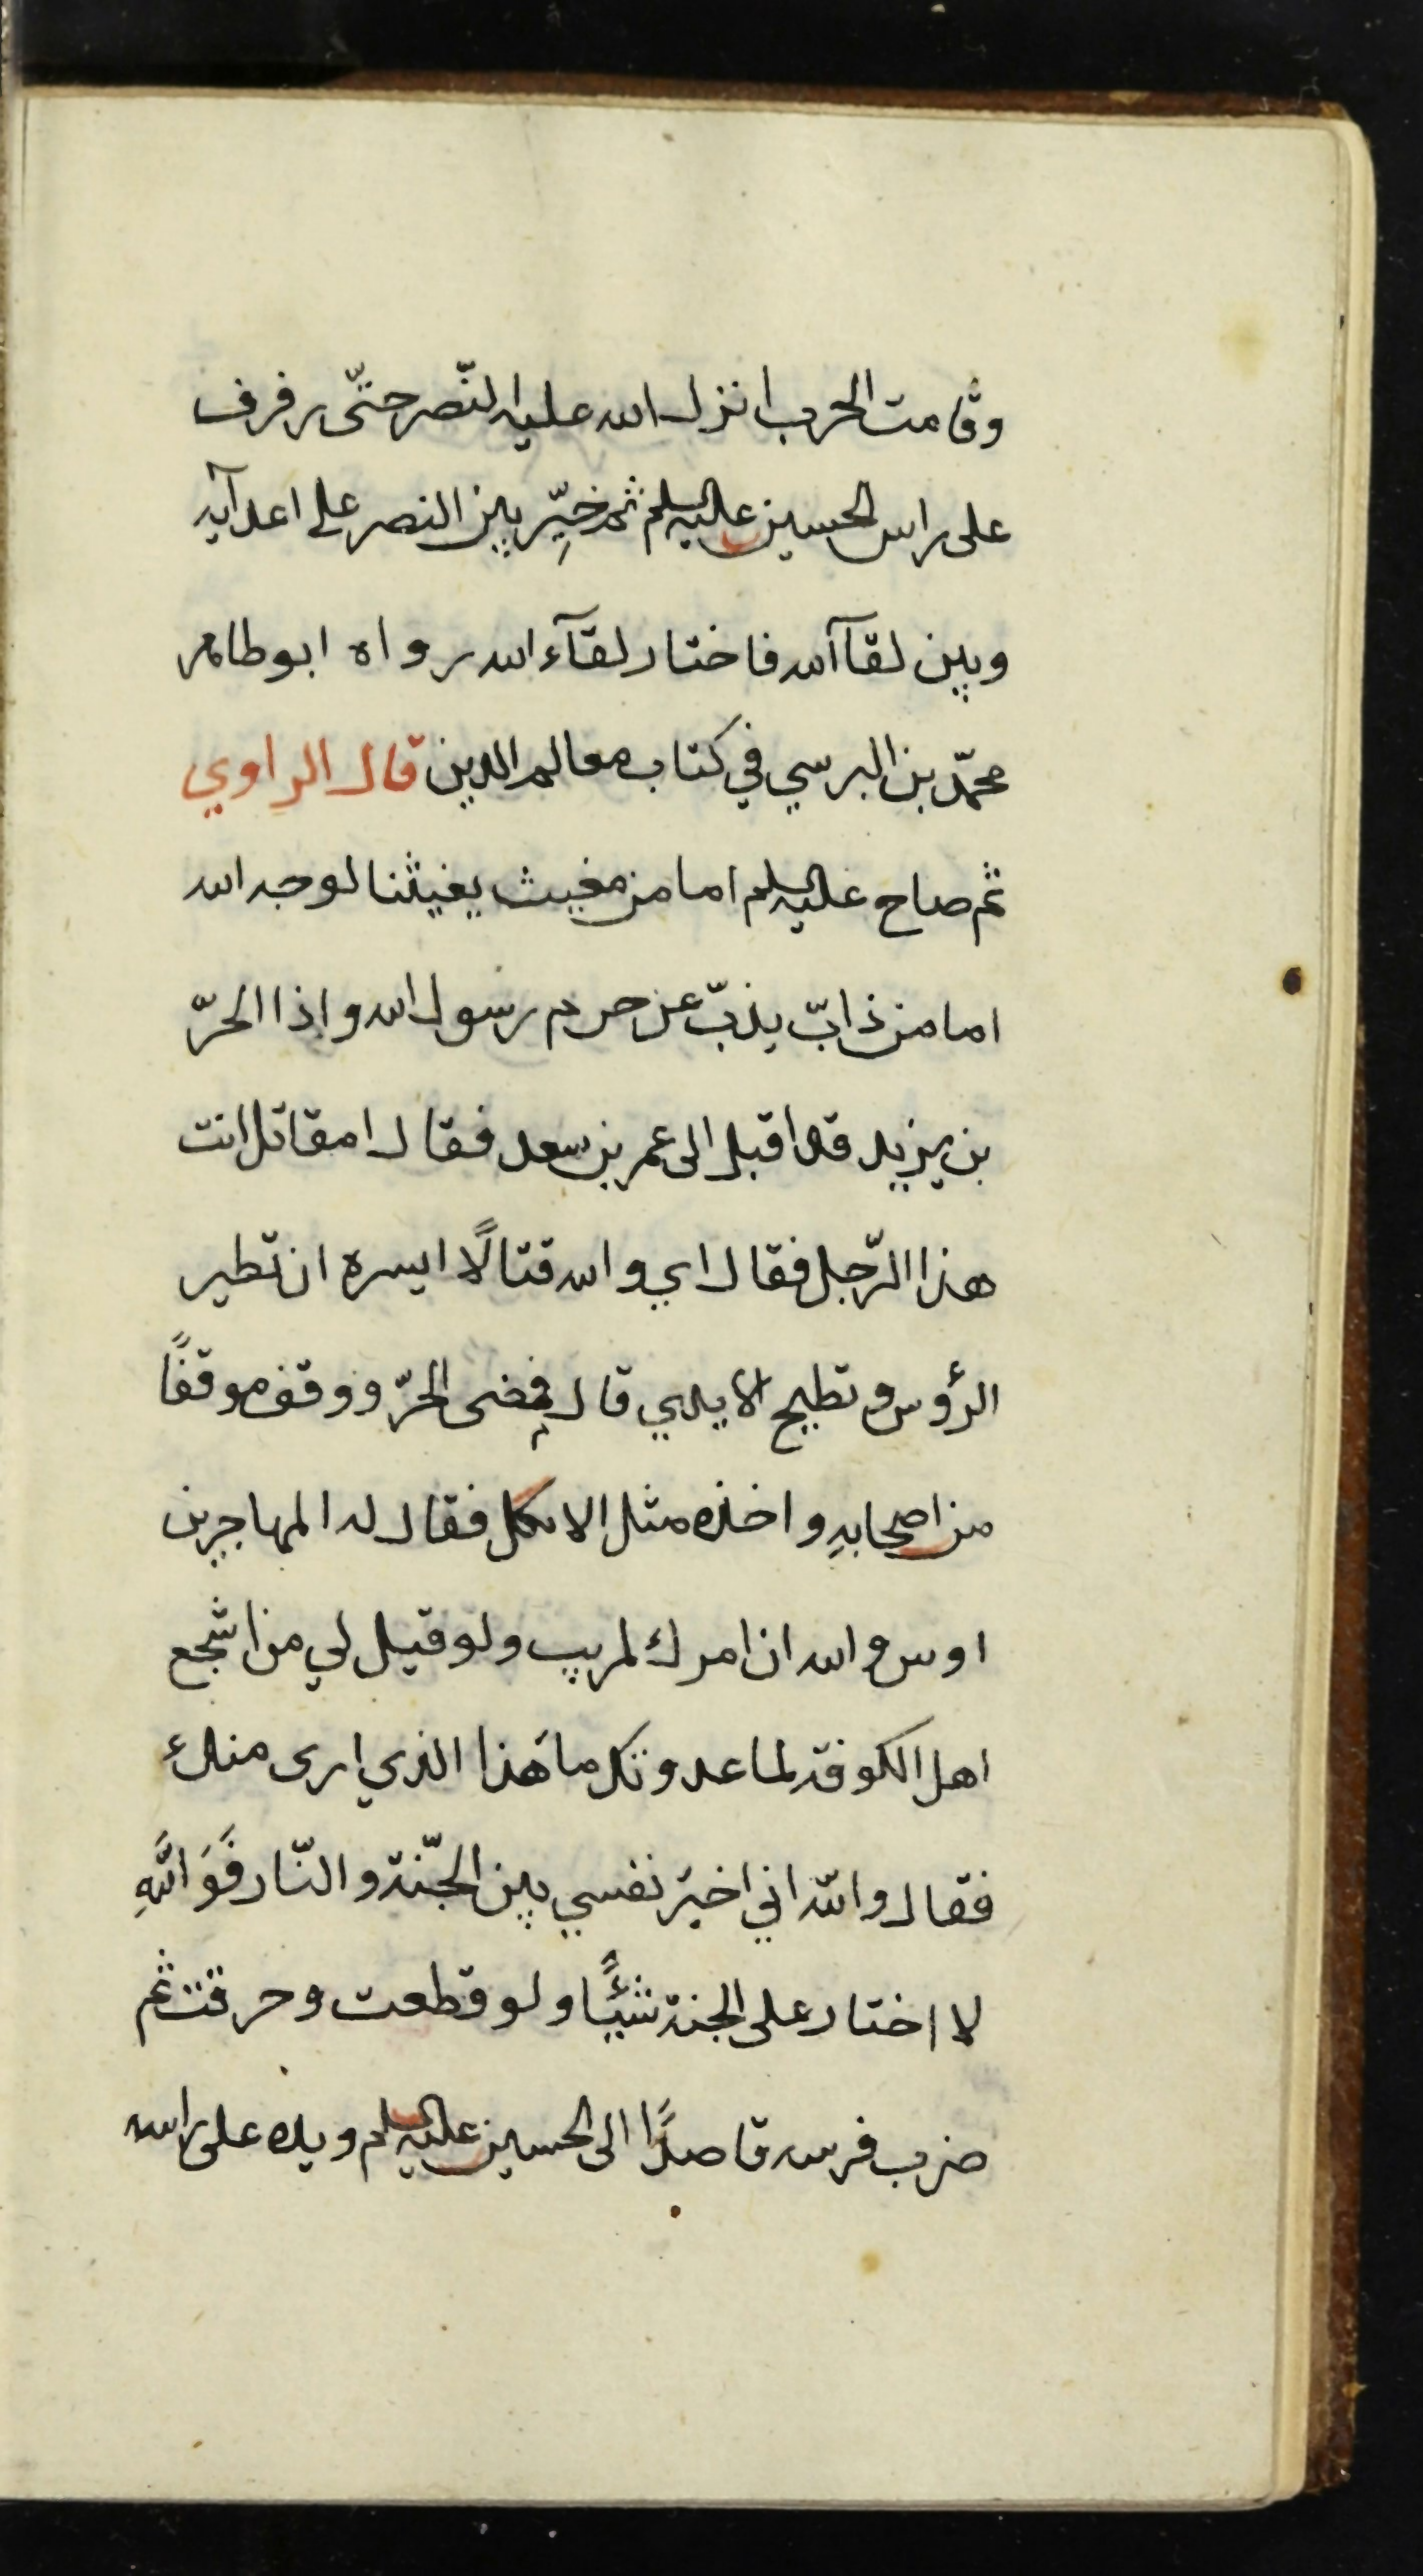 وقامت الحرب انزل الله عليه النّصر حتّى رفرف
على راس الحسين عليه السلم ثم خيِّر بين النصر على اعدآيه
وبين لقاآلله فاختار لقآء الله رواه ابو طاهر
محمّد بن البرسي في كتاب معالم الدين قال الراوي
ثم صاح عليه السلم اما من مغيث يغيثنا لوجه الله
اما من ذابّ يذبّ عن حرم رسول الله واذا الحرّ
بن يزيد قد اقبل الى عمر بن سعد فقال امقاتل انت
هذا الرّجل فقال اي والله قتالًا ايسره ان تطير
الرؤس وتطيح الايدي قال فمضى الحرّ ووقف موقفًا
من اصحابهِ واخذه مثل الافكل فقال له المهاجر بن
اوس والله ان امرك لمريب ولو قيل لي من اشجع
اهل الكوفة لما عدوتك ما هَذا الذي ارى منك
فقال والله اني اخيّر نفسي بين الجنّة والنّار فَوَاللهِ
لا اختار على الجنة شيئًا ولو قطعت وحرقت ثم
ضرب فرسه قاصدًا الى الحسين عليه السلم ويده على راسه